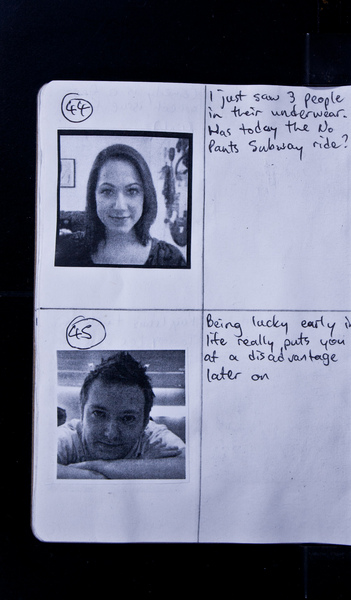 44
I just saw 3 people
in their underwear.
Was today the No
Pants Subway ride?
45
Being lucky early in
life really puts you
at a disadvantage
later on